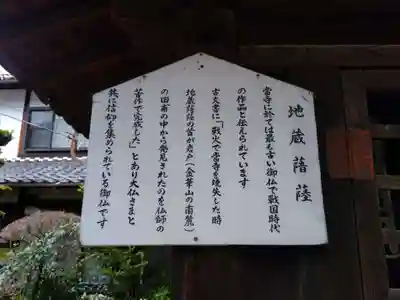 地蔵菩薩
当寺に於ては最も古い御仏で戦国時代
の作画と伝えられています
古文書に「戦火で当寺を焼失した時
地蔵菩薩の首が岩戸(金華山の南麓)
の田甫の中から発見されたのを仏師の
苦作で完成した」とあり大仏さまと
共に信仰を集められている御仏です